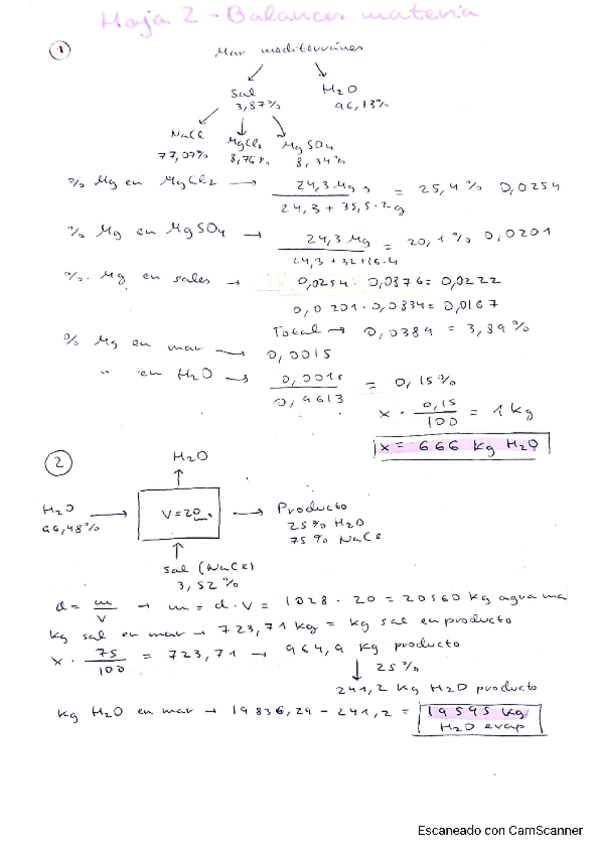 Hoja 2 - Balances materia
1
Mar mediterráneo
Sal
3,87%
H2O
96,13%
NaCl
77,07%
MgCl2
8,76%
MgSO4
8,34%
% Mg en MgCl2 → 24,3 Mg g / 24,3 + 35,5·2 g = 25,4% 0,0254
% Mg en MgSO4 → 24,3 Mg / 24,3 + 32 + 16·4 = 20,1% 0,0201
%. Mg en sales → 0,0254 · 0,0876 = 0,0222
0,0201 · 0,0834 = 0,0167
Total → 0,0389 = 3,89%
% Mg en mar → 0,0015
" en H2O → 0,0015 / 0,9613 = 0,15%
x · 0,15 / 100 = 1 kg
x = 666 kg H2O
2
H2O
H2O
96,48%
V = 20
Producto
25% H2O
75% NaCl
Sal (NaCl)
3,52%
d = m / V → m = d · V = 1028 · 20 = 20560 kg agua ma
kg sal en mar → 723,71 kg = kg sal en producto
x · 75 / 100 = 723,71 → 964,9 kg producto
25%
241,2 kg H2O producto
kg H2O en mar → 19836,29 - 241,2 = 19595 kg
H2O evap
Escaneado con CamScanner